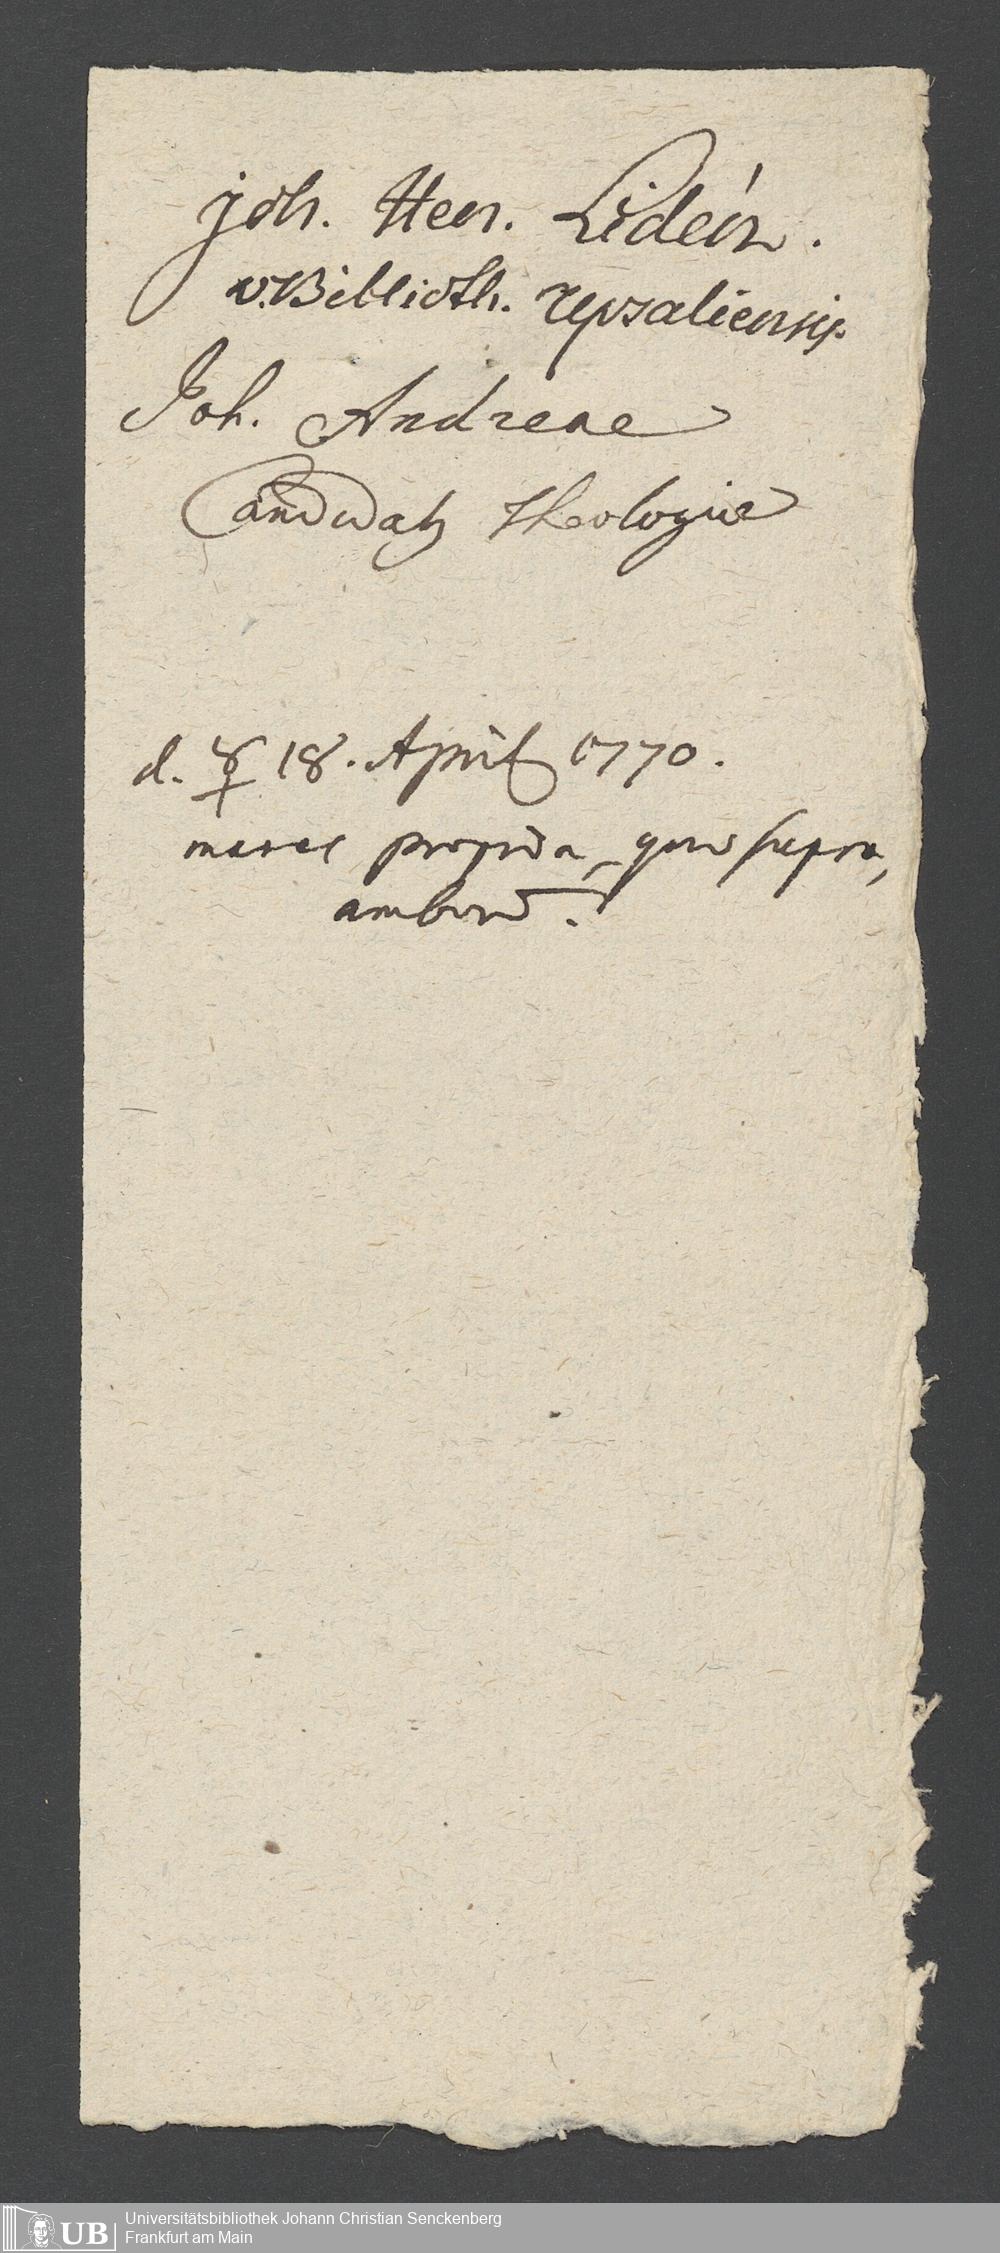 Joh. Hen. Lidén.
v. Biblioth. Upsaliensis.
Joh. Andreae
Candidatg theologiae
d. ☿ 18. April 1770.
manus propria, qui supra,
amborum.
Universitätsbibliothek Johann Christian Senckenberg
Frankfurt am Main
UB